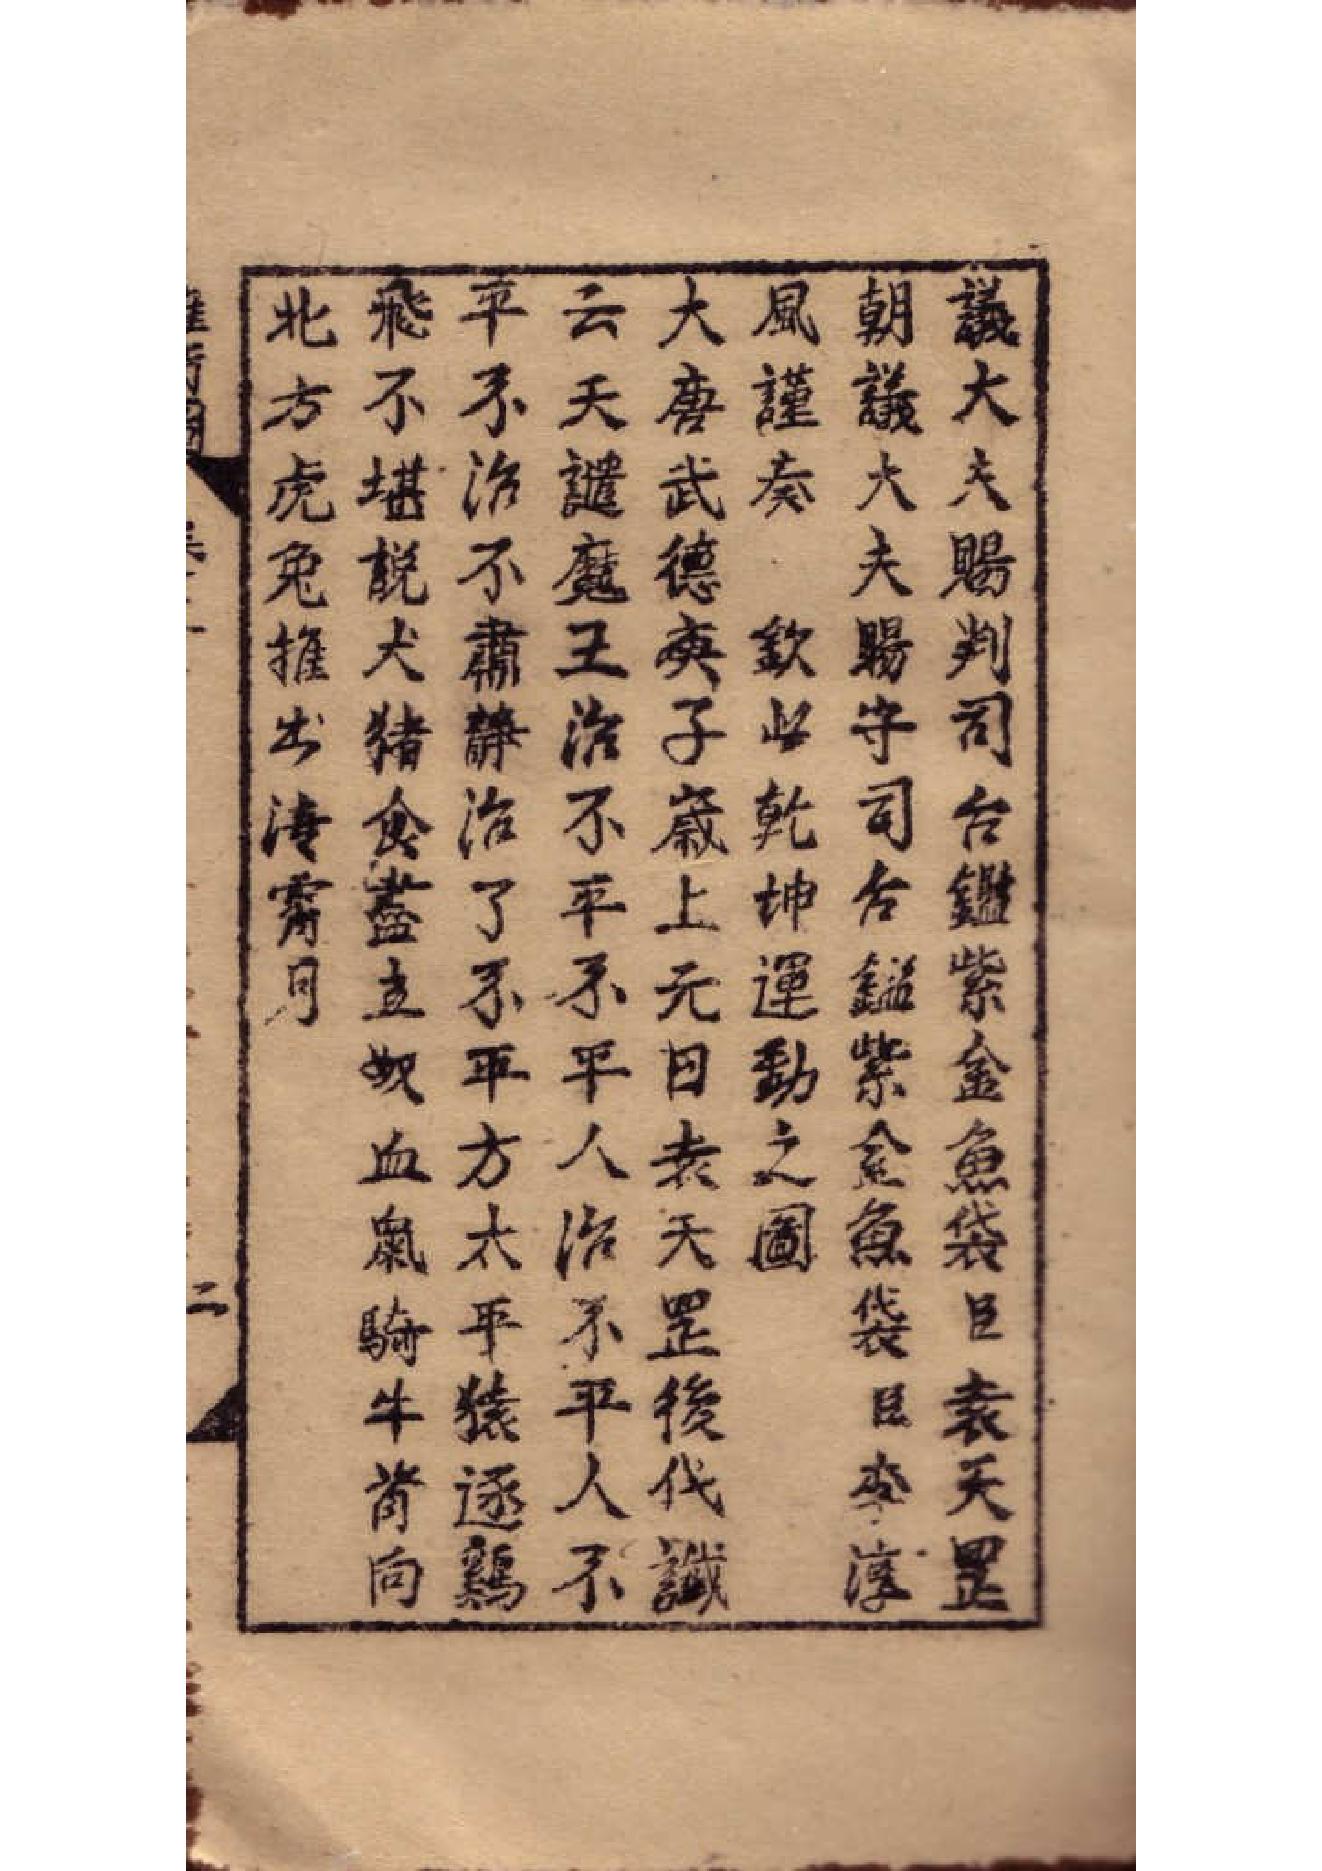 議大夫賜判司台鑑紫金魚袋臣袁天罡
朝議大夫賜守司台鎰紫金魚袋臣李淳
風謹奏　欽此乾坤運動之圖
大唐武德庚子歲上元日袁天罡後代讖
云天譴魔王治不平不平人治不平人不
平不治不肅靜治了不平方太平猿逐鷄
飛不堪説犬猪食盡立奴血氣騎牛背向
北方虎兔推出清霄月
二